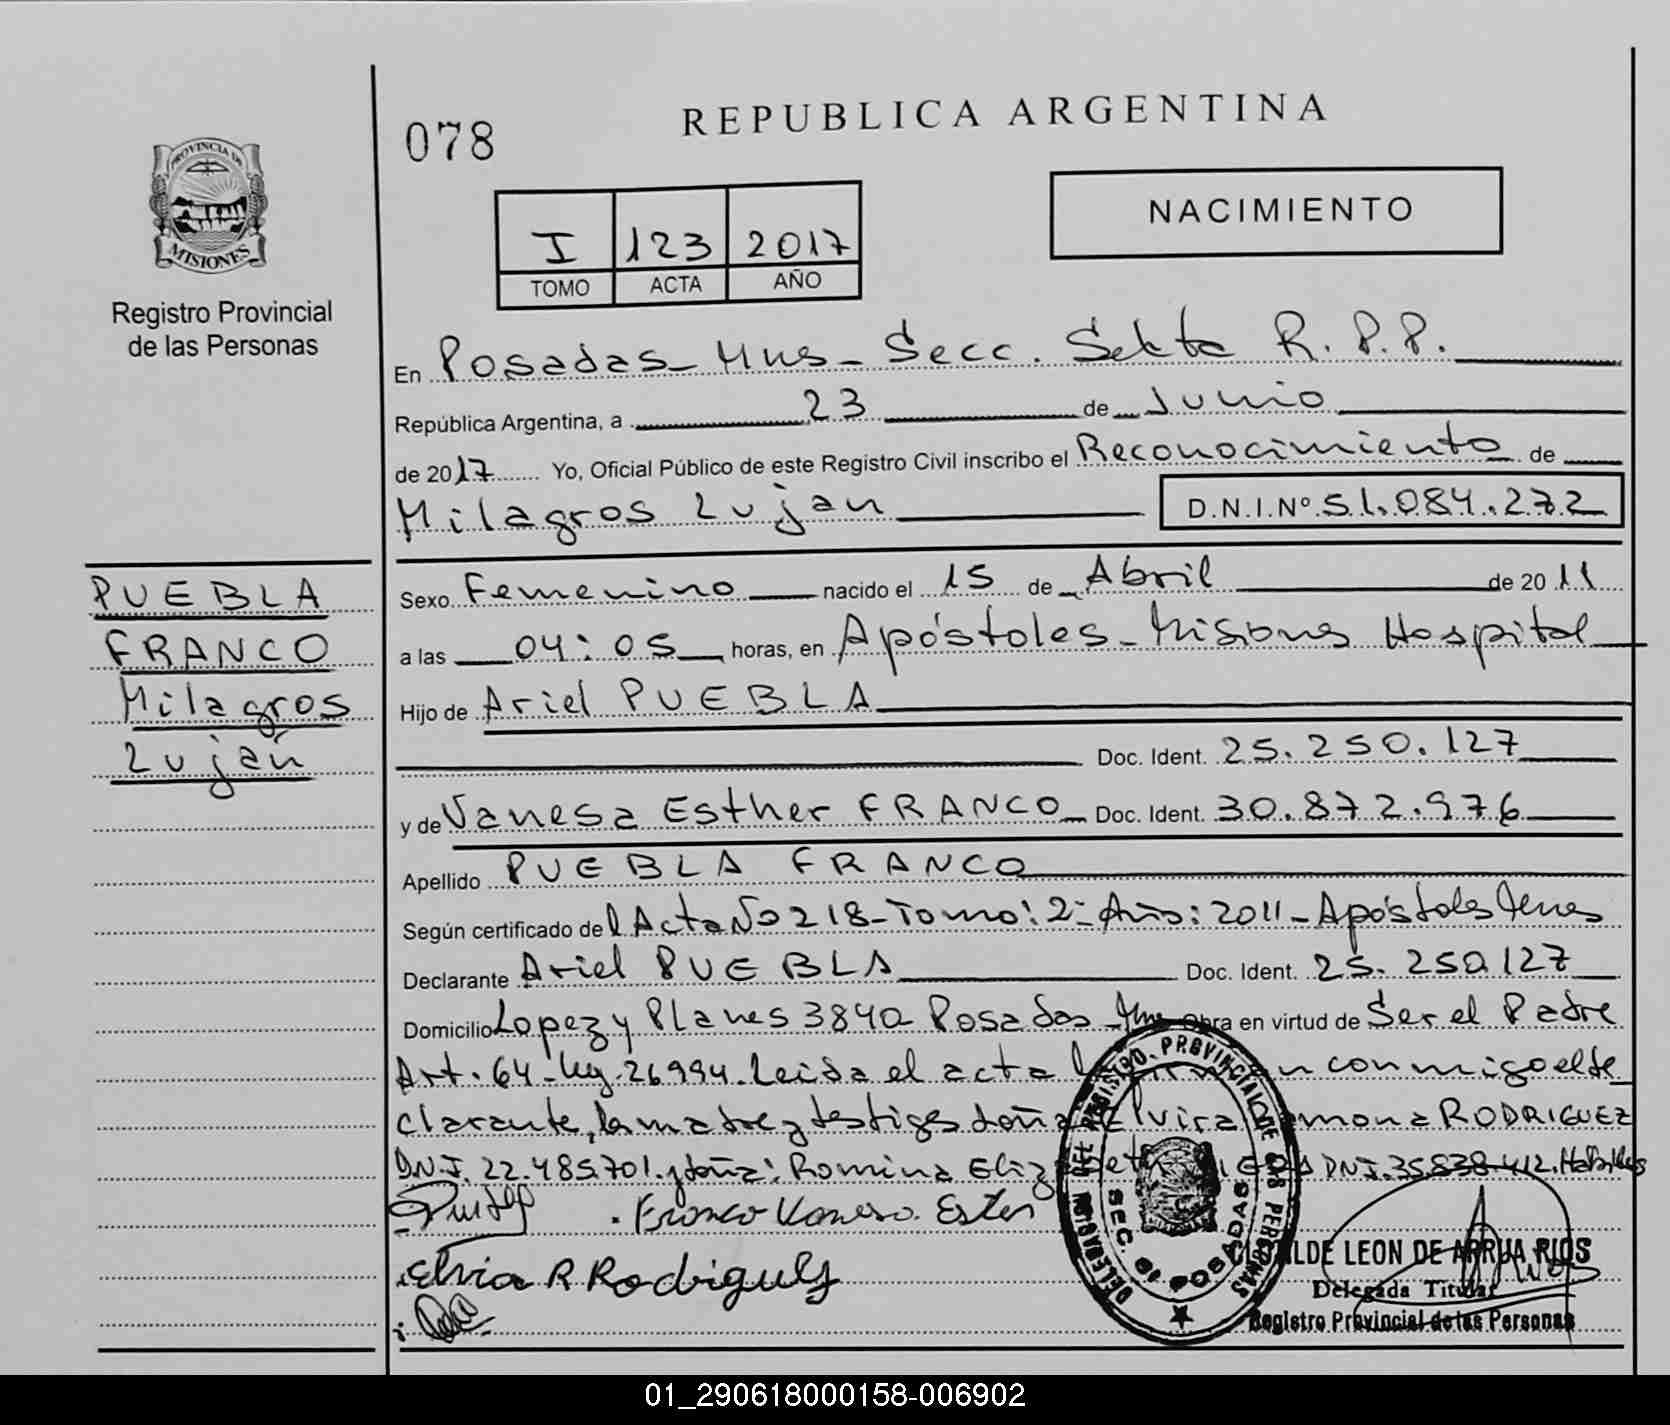 078
REPUBLICA ARGENTINA
PROVINCIA DE
MISIONES
Registro Provincial
de las Personas
NACIMIENTO
I 123 2017
TOMO ACTA AÑO
En Posadas - Mns - Secc. Sexta R.P.P.
República Argentina, a 23 de Junio
de 2017 Yo, Oficial Público de este Registro Civil inscribo el Reconocimiento de
Milagros Lujan D.N.I.Nº 51.084.272
PUEBLA
FRANCO
Milagros
Luján
Sexo Femenino nacido el 15 de Abril de 2011
a las 04:05 horas, en Apóstoles - Misiones Hospital
Hijo de Ariel PUEBLA
Doc. Ident. 25.250.127
y de Vanesa Esther FRANCO Doc. Ident. 30.872.976
Apellido PUEBLA FRANCO
Según certificado del Acta Nº 218 - Tomo: 2º - Año: 2011 - Apóstoles
Declarante Ariel PUEBLA Doc. Ident. 25.250.127
Domicilio Lopez y Planes 3840 Posadas - Mns Obra en virtud de Ser el Padre
Art. 64 - Ley. 26994. Leida el acta conmigo el de
clarante, la madre y testigos doña Elvira Ramona RODRIGUEZ
D.N.I. 22.485.701. y doña: Romina Eliz DNI. 35.838.412. Habiles
Franco Vanesa Ester
Elvia R Rodriguez
DELEGACION DEL REGISTRO PROVINCIAL DE LAS PERSONAS
SEC. 6ta POSADAS
LEON DE ARRUA RIOS
Delegada Titular
Registro Provincial de las Personas
01_290618000158-006902